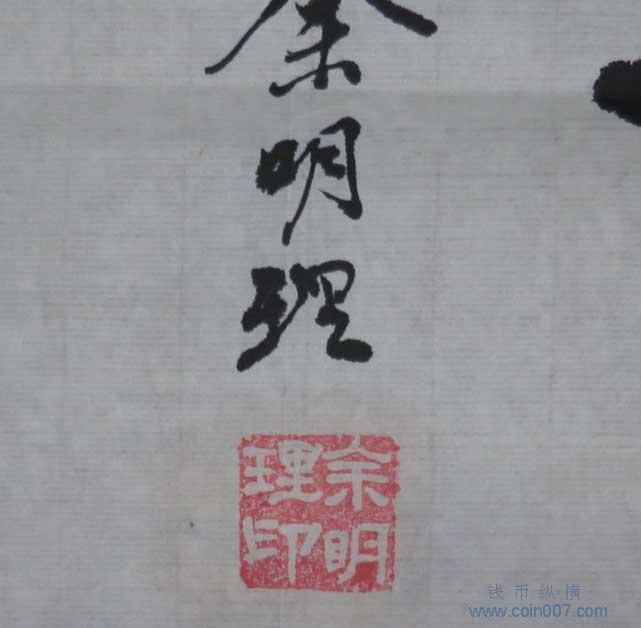 余明理
余明
理印
钱币纵横
www.coin007.com